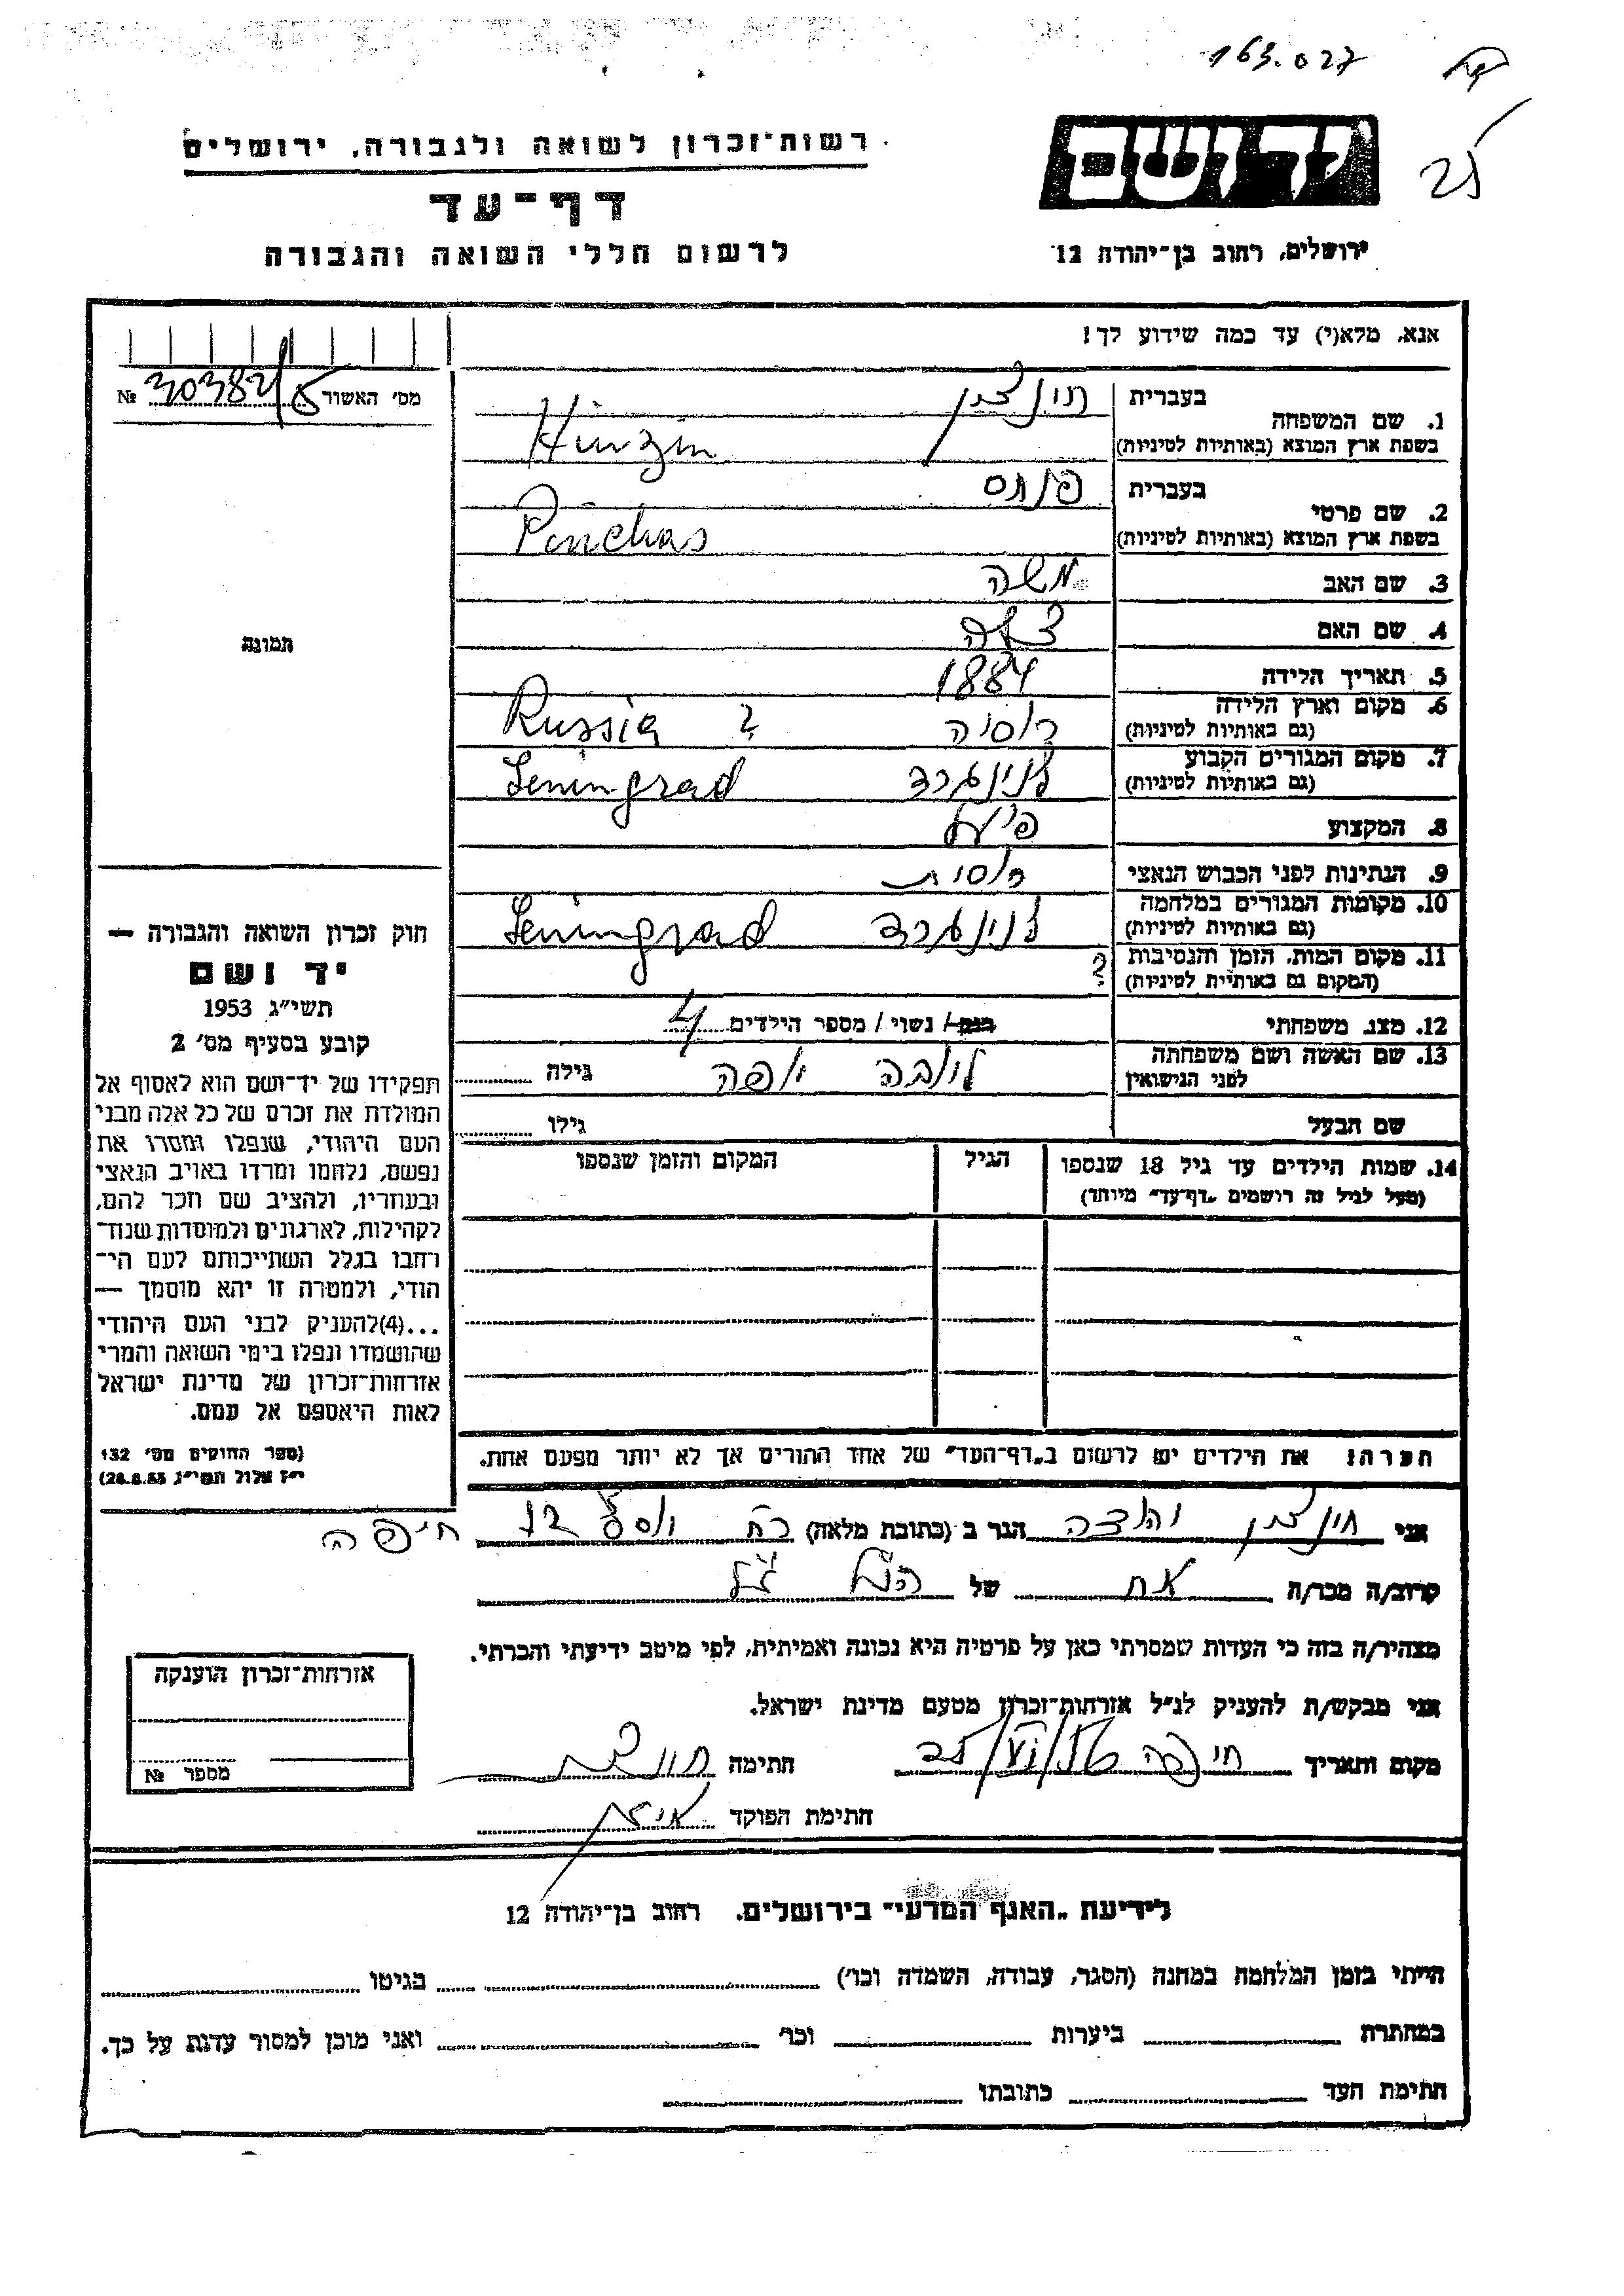 163.027
יד ושם
רשות־זכרון לשואה ולגבורה, ירושלים
דף־עד
לרשום חללי השואה והגבורה
ירושלים, רחוב בן־יהודה 12
אנא, מלא(י) עד כמה שידוע לך!
מס' האשור 30382/ №
1. שם המשפחה
בעברית
בשפת ארץ המוצא (באותיות לטיניות) Hinzin
2. שם פרטי
בעברית פנחס
בשפת ארץ המוצא (באותיות לטיניות) Pinchas
3. שם האב משה
4. שם האם
5. תאריך הלידה 1884
6. מקום וארץ הלידה רוסיה ? Russia
(גם באותיות לטיניות)
7. מקום המגורים הקבוע לנינגרד Leningrad
(גם באותיות לטיניות)
8. המקצוע
9. הנתינות לפני הכבוש הנאצי רוסית
10. מקומות המגורים במלחמה לנינגרד Leningrad
(גם באותיות לטיניות)
11. מקום המות, הזמן והנסיבות ?
(המקום גם באותיות לטיניות)
12. מצב משפחתי רוק / נשוי / מספר הילדים 4
13. שם האשה ושם משפחתה לובה יופה גילה
לפני הנישואין
שם הבעל גילו
14. שמות הילדים עד גיל 18 שנספו הגיל המקום והזמן שנספו
(מעל לגיל זה רושמים „דף־עד" מיוחד)
הערה! את הילדים יש לרשום ב„דף־העד" של אחד ההורים אך לא יותר מפעם אחת.
תמונה
חוק זכרון השואה והגבורה —
יד ושם
תשי"ג 1953
קובע בסעיף מס' 2
תפקידו של יד־ושם הוא לאסוף אל
המולדת את זכרם של כל אלה מבני
העם היהודי, שנפלו ומסרו את
נפשם, נלחמו ומרדו באויב הנאצי
ובעוזריו, ולהציב שם וזכר להם,
לקהילות, לארגונים ולמוסדות שנח־
רבו בגלל השתייכותם לעם הי־
הודי, ולמטרה זו יהא מוסמך —
...(4)להעניק לבני העם היהודי
שהושמדו ונפלו בימי השואה והמרי
אזרחות־זכרון של מדינת ישראל
לאות היאספם אל עמם.
(ספר החוקים מס' 132
י"ז אלול תשי"ג, 28.8.53)
אני חינצין יהודה הגר ב (כתובת מלאה) רח 12 חיפה
קרוב/ה מכר/ה אח של הנ"ל
מצהיר/ה בזה כי העדות שמסרתי כאן על פרטיה היא נכונה ואמיתית, לפי מיטב ידיעתי והכרתי.
אני מבקש/ת להעניק לנ"ל אזרחות־זכרון מטעם מדינת ישראל.
מקום ותאריך חיפה חתימה
חתימת הפוקד
אזרחות־זכרון הוענקה
מספר №
לידיעת „האגף המדעי" בירושלים. רחוב בן־יהודה 12
הייתי בזמן המלחמה במחנה (הסגר, עבודה, השמדה וכו') בגיטו
במחתרת ביערות וכו' ואני מוכן למסור עדות על כך.
חתימת העד כתובתו